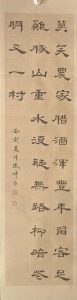 莫笑農家臘酒渾豐年留客足
雞豚山重水複疑無路柳暗花
明又一村